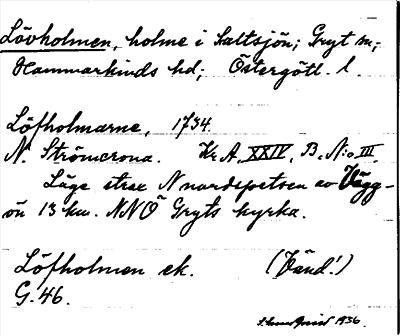 Lövholmen, holme i Saltsjön; Gryt sn;
Hammarkinds hd; Östergötl. l.
Löfholmarne, 1734.
N. Strömcrona. Kr. A. XXIV, B. N:o III.
Läge strax N nordspetsen av Vägg-
ön 13 km. NNÖ Gryts kyrka.
Löfholmen ek. (Vänd!)
G. 46.
1936.